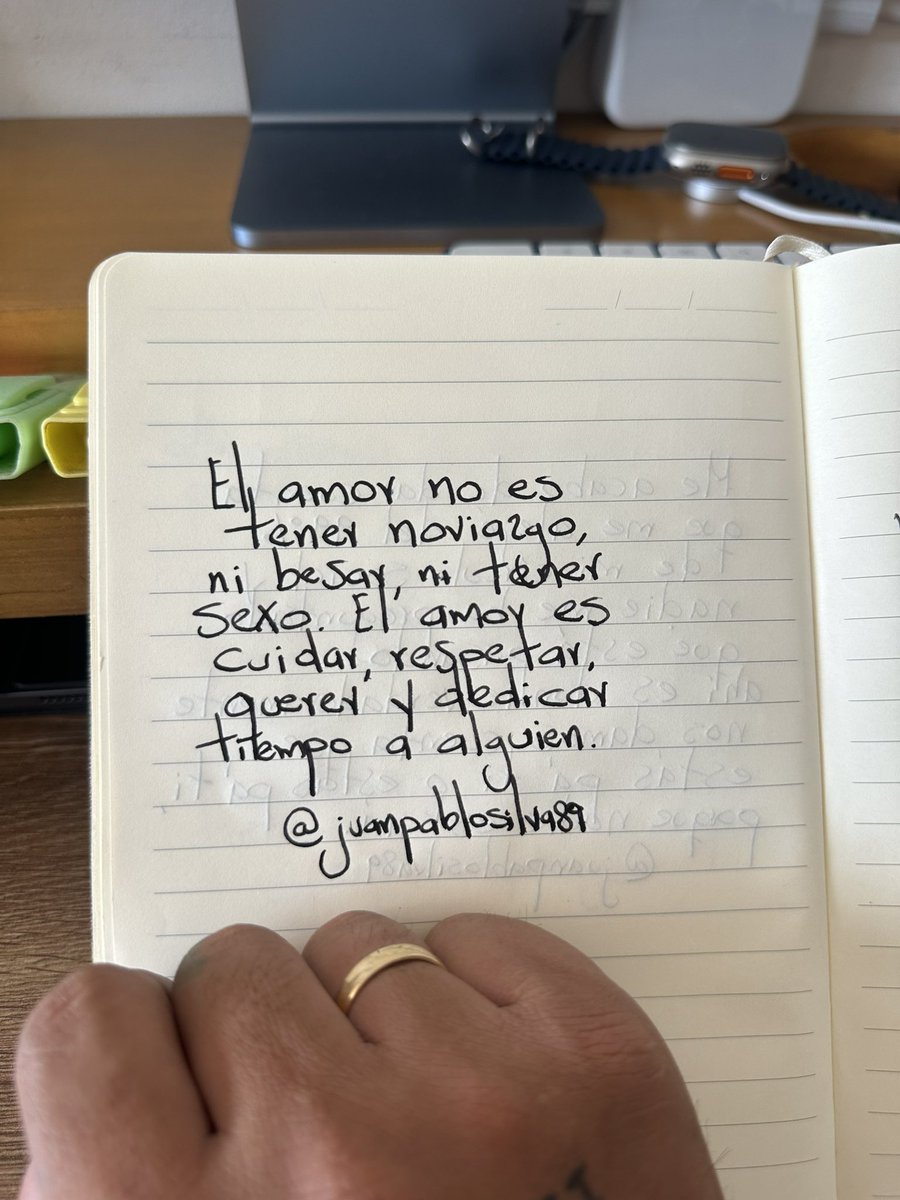 El amor no es
tener noviazgo,
ni besar, ni tener
sexo. El amor es
cuidar, respetar,
querer y dedicar
tiempo a alguien.
@juanpablosilva89